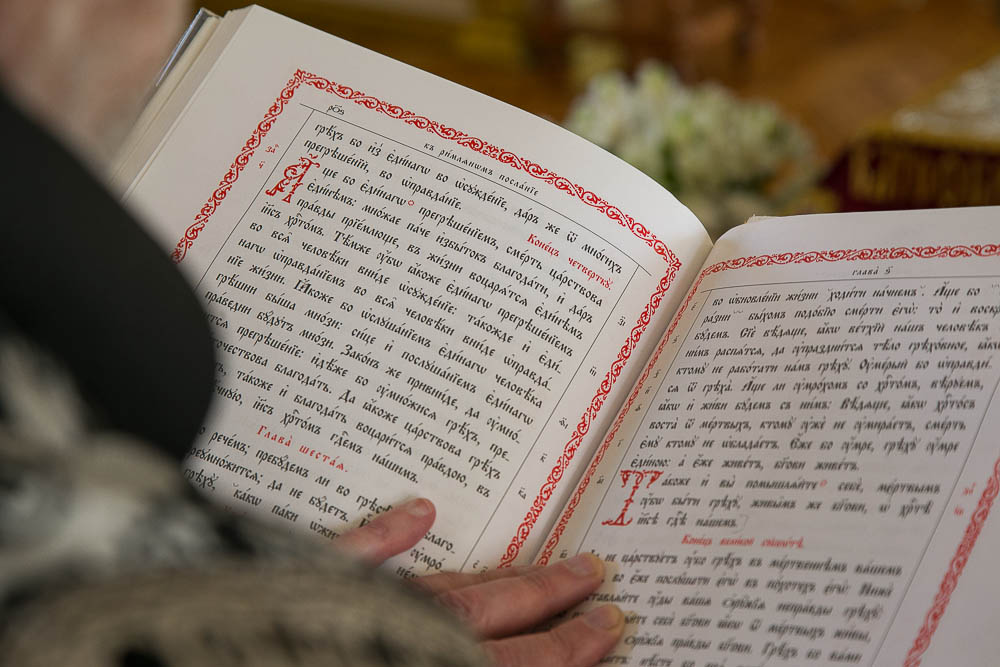 къ ри́млѧнѡмъ посла́нїе
грѣ́хъ бо и҆з̾ є҆ди́нагѡ во ѡ҆сꙋжде́нїе, да́ръ же ѿ мно́гихъ
прегрѣше́нїй, во ѡ҆правда́нїе. Коне́цъ четверткꙋ̀.
А҆́ще бо є҆ди́нагѡ прегрѣше́нїемъ, сме́рть ца́рствова
є҆ди́нѣмъ: мно́жае па́че и҆збы́токъ благода́ти, и҆ да́ръ
пра́вды прїе́млюще, въ жи́зни воцарѧ́тсѧ є҆ди́нѣмъ
і҆и҃съ хрⷭ҇то́мъ. Тѣ́мже ᲂу҆̀бѡ ꙗ҆́коже є҆ди́нагѡ прегрѣше́нїемъ
во всѧ̑ человѣ́ки вни́де ѡ҆сꙋжде́нїе: та́кожде и҆ є҆ди́-
нагѡ ѡ҆правда́нїемъ во всѧ̑ человѣ́ки вни́де ѡ҆правда́-
нїе жи́зни. Ꙗ҆́коже бо ѡ҆слꙋша́нїемъ є҆ди́нагѡ человѣ́ка
грѣ́шни бы́ша мно́зи: си́це и҆ послꙋша́нїемъ є҆ди́нагѡ
пра́ведни бꙋ́дꙋтъ мно́зи. Зако́нъ же привни́де, да ᲂу҆мно́-
тсѧ прегрѣше́нїе: и҆дѣ́же бо ᲂу҆мно́жисѧ грѣ́хъ, пре-
благода́ть. Да ꙗ҆́коже ца́рствова грѣ́хъ
та́кожде и҆ благода́ть воцари́тсѧ пра́вдою, въ
і҆и҃съ хрⷭ҇то́мъ гдⷭ҇емъ на́шимъ.
Глава̀ шеста́ѧ.
рече́мъ; пребꙋ́демъ ли во грѣсѣ̀
да не бꙋ́детъ.
грѣхꙋ̀, ка́кѡ па́ки
Глава̀ ѕ҃
во ѡ҆бновле́нїи жи́зни ходи́ти на́чнемъ. А҆́ще бо
бы́хомъ подо́бїю сме́рти є҆гѡ̀: то̀ и҆ воскр
бꙋ́демъ. Сїѐ вѣ́дѧще, ꙗ҆́кѡ ве́тхїй на́шъ человѣ́къ
ни́мъ распѧ́тсѧ, да ᲂу҆праздни́тсѧ тѣ́ло грѣхо́вное, ꙗ҆́кѡ
ктомꙋ̀ не рабо́тати на́мъ грѣхꙋ̀. Оу҆ме́рый бо ѡ҆правди́-
сѧ ѿ грѣха̀. А҆́ще ли ᲂу҆мро́хомъ со хрⷭ҇то́мъ, вѣ́рꙋемъ,
ꙗ҆́кѡ и҆ жи́ви бꙋ́демъ съ ни́мъ: Вѣ́дѧще, ꙗ҆́кѡ хрⷭ҇то́съ
воста̀ ѿ ме́ртвыхъ, ктомꙋ̀ ᲂу҆жѐ не ᲂу҆мира́етъ, сме́рть
є҆мꙋ̀ ктомꙋ̀ не ѡ҆блада́етъ. Є҆́же бо ᲂу҆́мре, грѣхꙋ̀ ᲂу҆́мре
є҆ди́ною: а҆ є҆́же живе́тъ, бг҃ови живе́тъ.
Та́коже и҆ вы̀ помышлѧ́йте себѐ, ме́ртвымъ
ᲂу҆́бѡ бы́ти грѣхꙋ̀, живы̑мъ же бг҃ови, ѡ҆ хрⷭ҇тѣ̀
і҆и҃сѣ гдⷭ҇ѣ на́шемъ.
Коне́цъ вели́кой сꙋббѡ́тѣ.
не ца́рствꙋетъ ᲂу҆̀бо грѣ́хъ въ ме́ртвеннѣмъ ва́шемъ
во є҆́же послꙋ́шати є҆гѡ̀ въ по́хотехъ є҆гѡ̀: Нижѐ
ᲂу҆́ды ва́шѧ ѻ҆рꙋ̑жїѧ непра́вды грѣхꙋ̀:
себѐ бг҃ови ꙗ҆́кѡ ѿ ме́ртвыхъ жи́вы,
ѻ҆рꙋ̑жїѧ пра́вды бг҃ови. Грѣ́хъ бо ва́ми